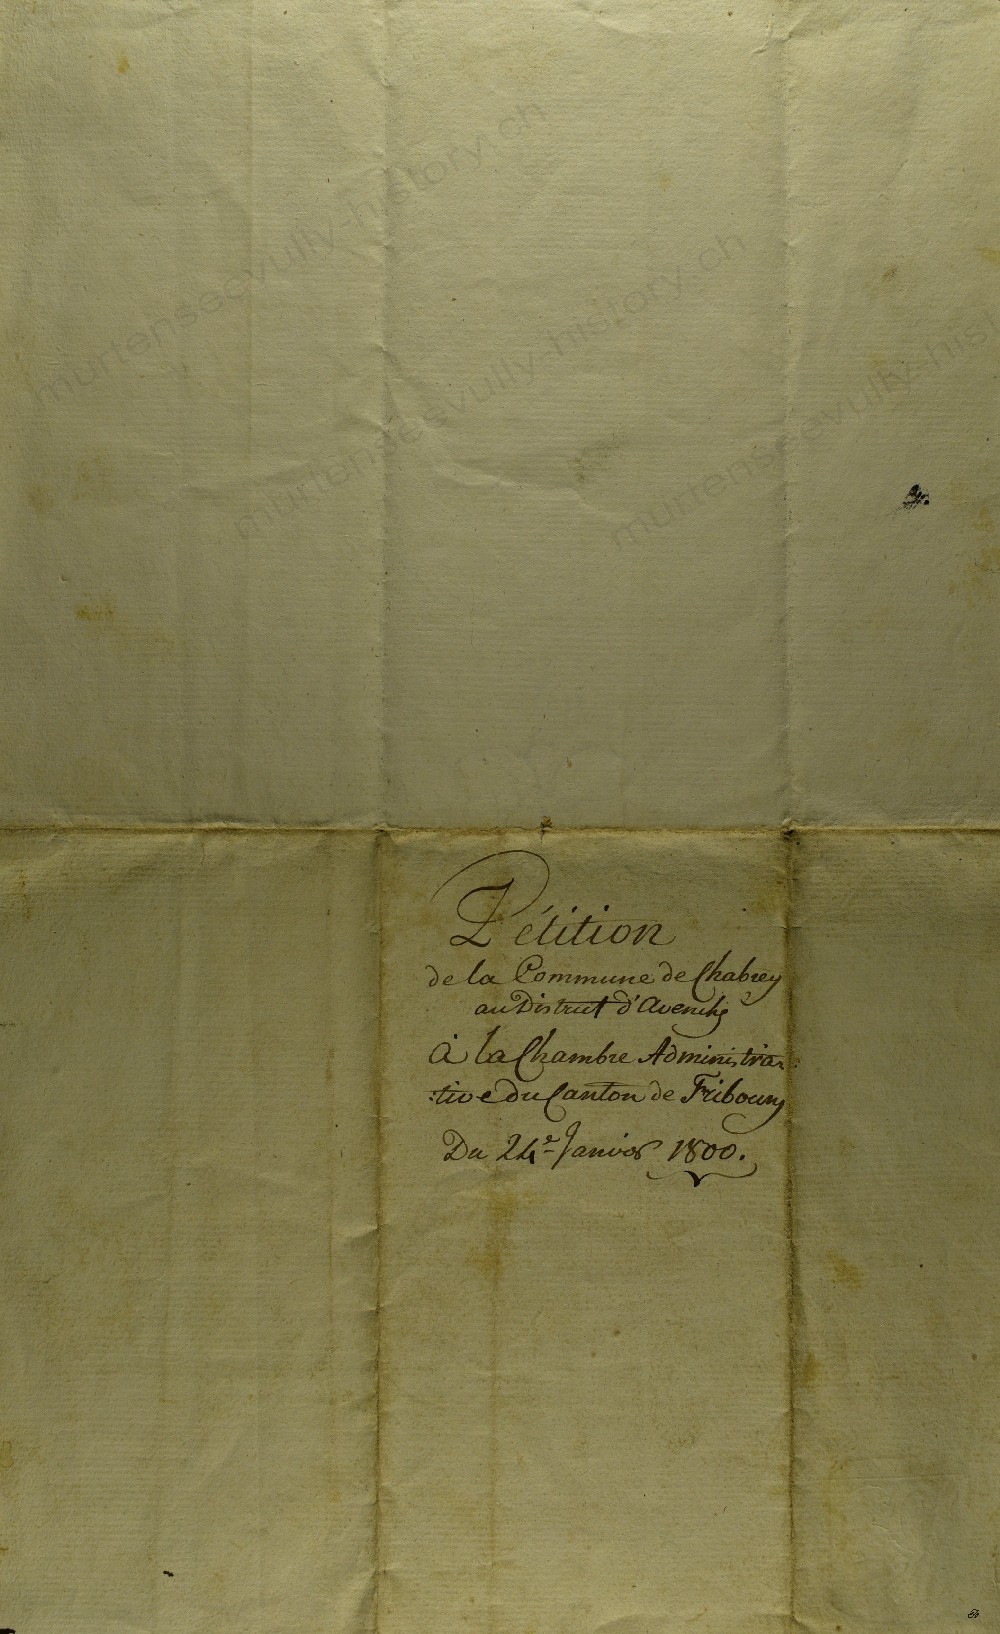 murtenseevully-history.ch
murtenseevully-history.ch
murtenseevully-his
Pétition
de la Commune de Chabrey
au District d'Avenche
à la Chambre Administra:
:tive du Canton de Fribourg
Du 24e Janvier 1800.